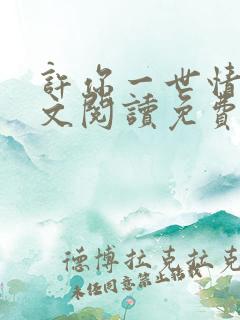 許你一世情
文閱讀免費
德博拉克拉克
未经同意禁止转载